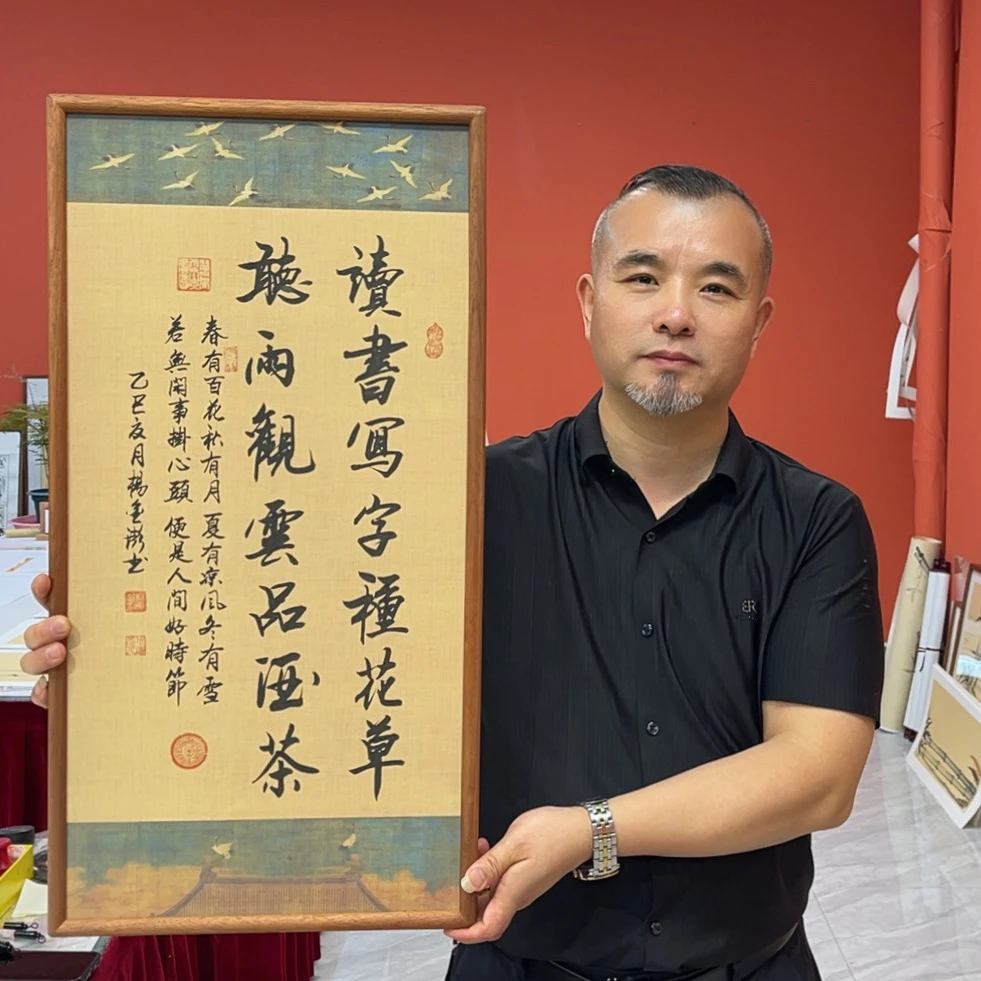 讀書寫字種花草
聽雨觀雲品酒茶
春有百花秋有月 夏有凉风冬有雪
若無閑事掛心頭 便是人间好時節
乙巳夏月楊金书